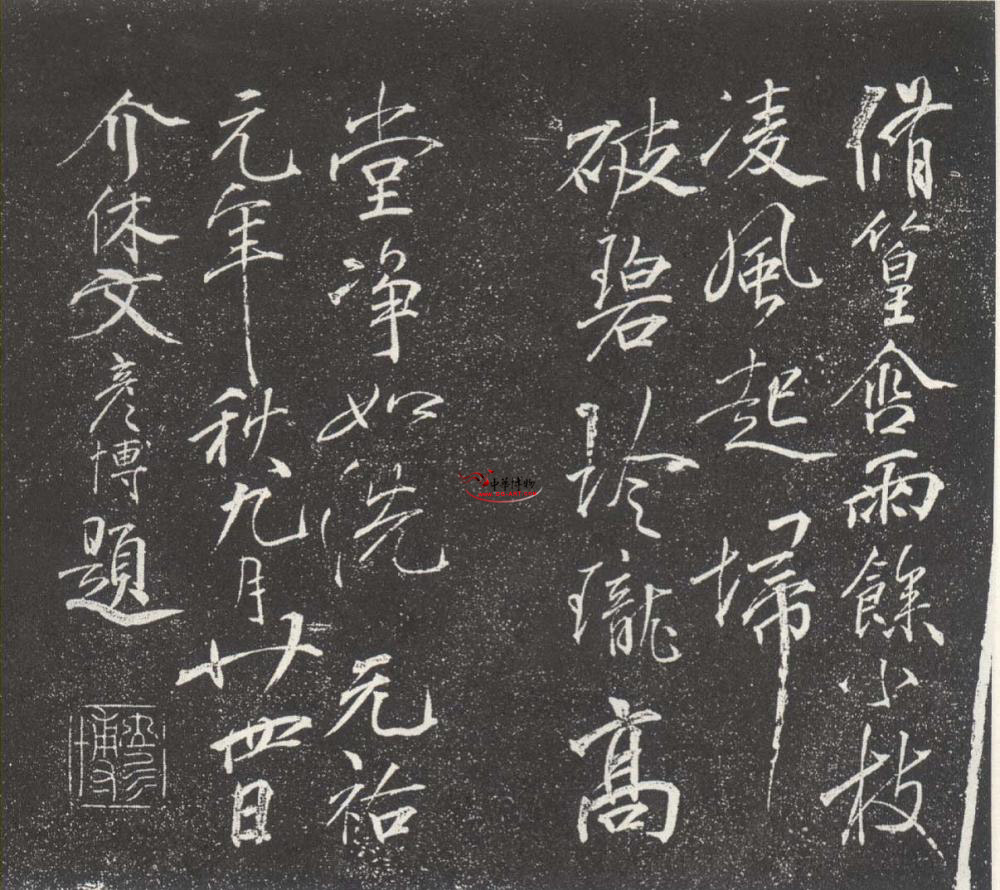 脩篁含雨餘小枝
凌風起掃
破碧玲瓏高
堂净如洗 元祐
元年秋九月廿四日
介休文彦博題
彦博
中華博物